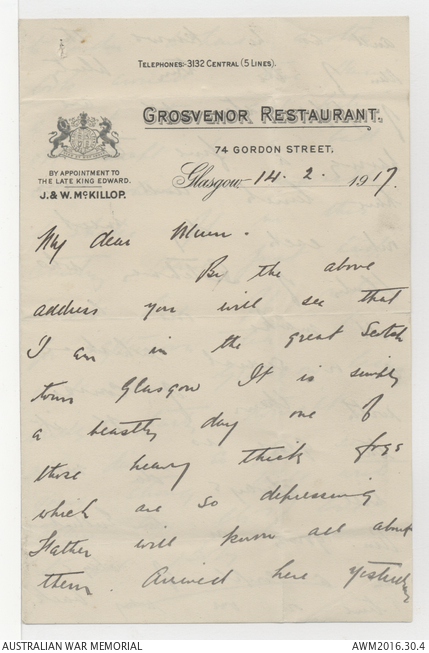 TELEPHONES:-3132 CENTRAL (5 LINES).
GROSVENOR RESTAURANT.
74 GORDON STREET,
BY APPOINTMENT TO
THE LATE KING EDWARD.
J. & W. McKILLOP.
Glasgow 14. 2. 1917.
My dear Mum.
By the above
address you will see that
I am in the great Scotch
town Glasgow It is simply
a beastly day one of
those heavy thick fogs
which are so depressing
Father will know all about
them. Arrived here yesterday
AUSTRALIAN WAR MEMORIAL
AWM2016.30.4